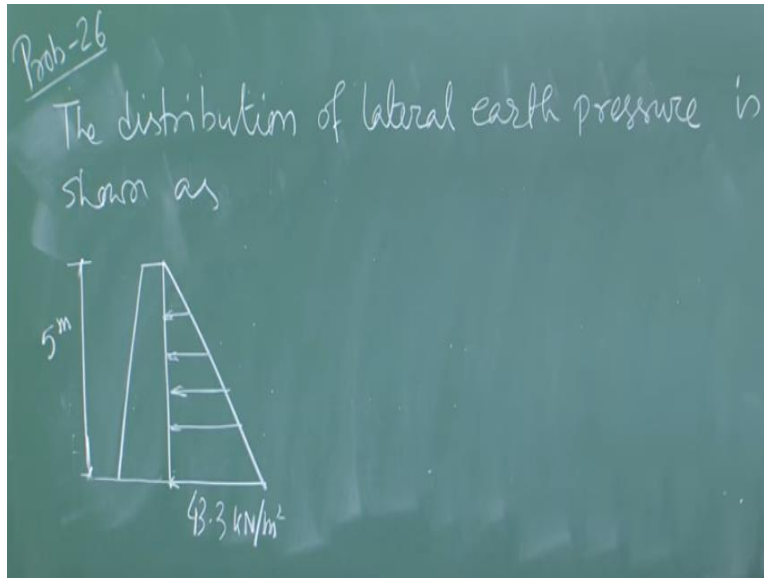 Prob-26
The distribution of lateral earth pressure is
shown as
5m
43.3 kN/m²